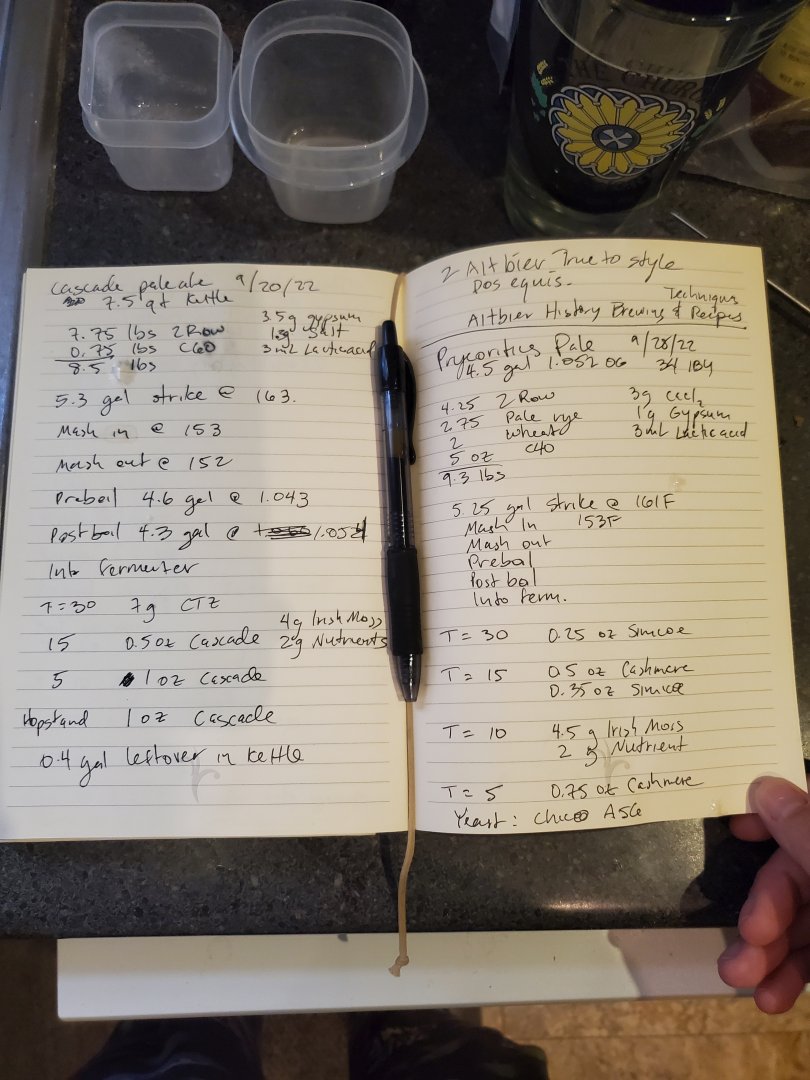 Cascade pale ale 9/20/22
7.5 qt Kettle
3.5g gypsum
7.75 lbs 2Row 1.3g Salt
0.75 lbs C60 3mL Lactic acid
8.5 lbs
5.3 gal strike @ 163.
Mash in @ 153
Mash out @ 152
Preboil 4.6 gal @ 1.043
Post boil 4.3 gal @ 1.054
Into fermenter
T=30 7g CTZ
4g Irish Moss
15 0.5 oz Cascade 2g Nutrients
5 1 oz Cascade
Hopstand 1 oz Cascade
0.4 gal leftover in kettle
2 Altbier True to style
Dos equis.
Techniques
Altbier History Brewing & Recipes
Pale 9/28/22
4.5 gal 1.052 OG 34 IBU
4.25 2 Row 3g CaCl2
2.75 Pale rye 1g Gypsum
2 Wheat 3mL Lactic acid
5 oz C40
9.3 lbs
5.25 gal Strike @ 161F
Mash In 153F
Mash out
Preboil
Post boil
Into ferm.
T = 30 0.25 oz Simcoe
T = 15 0.5 oz Cashmere
0.35 oz Simcoe
T = 10 4.5 g Irish Moss
2 g Nutrient
T = 5 0.75 oz Cashmere
Yeast: Chico A56
THE CHURCH